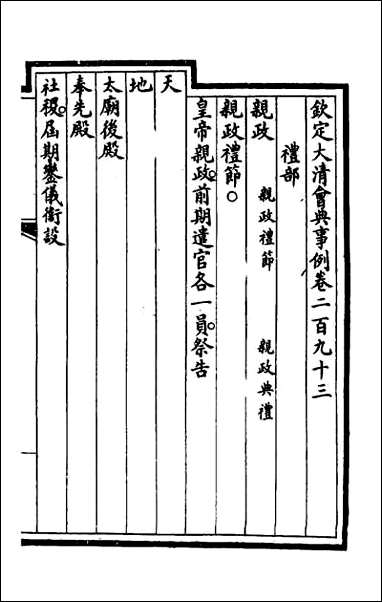 欽定大清會典事例卷二百九十三
禮部
親政 親政禮節 親政典禮
親政禮節○
皇帝親政。前期遣官各一員。祭告
天
地
太廟後殿
奉先殿
社稷。屆期鑾儀衛設